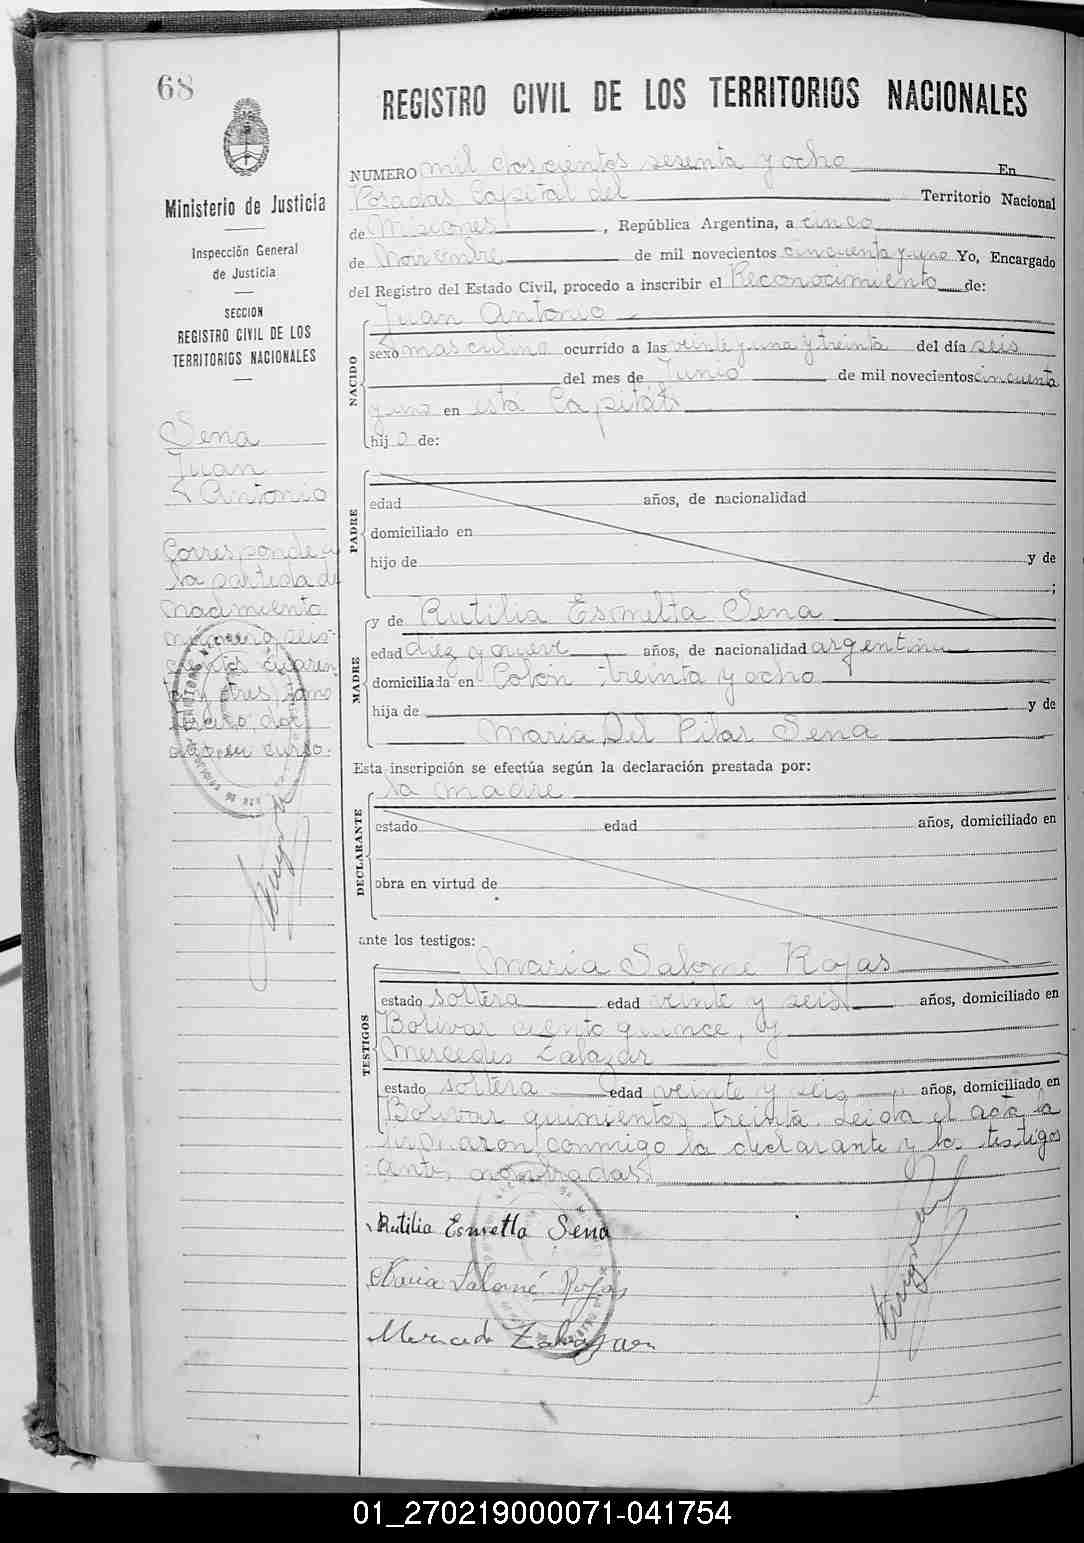 68
REGISTRO CIVIL DE LOS TERRITORIOS NACIONALES
Ministerio de Justicia
Inspección General
de Justicia
SECCION
REGISTRO CIVIL DE LOS
TERRITORIOS NACIONALES
Sena
Juan
Antonio
Corresponde a
la partida de
nacimiento
número seis-
cientos cuaren
ta y tres, tomo
del
año en curso.
NUMERO mil doscientos sesenta y ocho En
Posadas Capital del Territorio Nacional
de Misiones, República Argentina, a cinco
de Noviembre de mil novecientos cincuenta y uno Yo, Encargado
del Registro del Estado Civil, procedo a inscribir el Reconocimiento de:
NACIDO
Juan Antonio
sexo masculino ocurrido a las veinte y una y treinta del día seis
del mes de Junio de mil novecientos cincuenta
y uno en esta Capital
hij o de:
PADRE
edad años, de nacionalidad
domiciliado en
hijo de y de
;
MADRE
y de Rutilia Esmelta Sena
edad diez y nueve años, de nacionalidad argentina
domiciliada en Colón treinta y ocho
hija de y de
Maria Del Pilar Sena
Esta inscripción se efectúa según la declaración prestada por:
DECLARANTE
la madre
estado edad años, domiciliado en
obra en virtud de
ante los testigos:
TESTIGOS
Maria Salome Rojas
estado soltera edad veinte y seis años, domiciliado en
Bolivar ciento quince, y
Mercedes Zalazar
estado soltera edad veinte y seis años, domiciliado en
Bolivar quinientos treinta. Leida el acta la
firmaron conmigo la declarante y los testigos
antes nombrados.
Rutilia Esmelta Sena
Maria Salomé Rojas
Mercede Zalazar
01_270219000071-041754